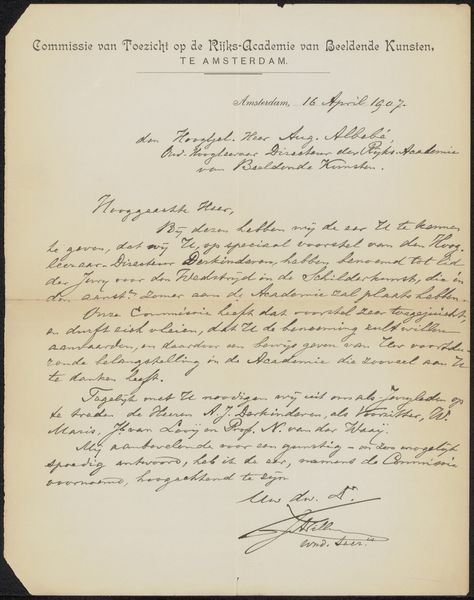 Commissie van Toezicht op de Rijks-Academie van Beeldende Kunsten,
TE AMSTERDAM.
Amsterdam, 16 April 1907.
den Hooggel. Heer Aug. Allebé,
Oud-Hoogleeraar Directeur der Rijks-Academie
van Beeldende Kunsten.
Hooggeachte Heer,
Bij dezen hebben wij de eer U te kennen
te geven, dat wij U, op speciaal voorstel van den Hoog-
leeraar-Directeur Derkinderen, hebben benoemd tot lid
der Jury voor den Wedstrijd in de Schilderkunst, die in
den aanst. zomer aan de Academie zal plaats hebben.
Onze Commissie heeft dat voorstel zeer toegejuicht
en durft zich vleien, dat U de benoeming zult willen
aanvaarden, en daardoor een bewijs geven van Uw voortdu-
rende belangstelling in de Academie die zooveel aan U
te danken heeft.
Tegelijk met U noodigen wij uit om als Juryleden op
te treden de Heeren A. J. Derkinderen, als Voorzitter, W.
Maris, J. van Looij en Prof. N. van der Waaij.
Mij aanbevelende voor een gunstig en zoo mogelijk
spoedig antwoord, heb ik de eer, namens de Commissie
voornoemd, hoogachtend te zijn
Uw dw. Dr.
wnd. Secr.